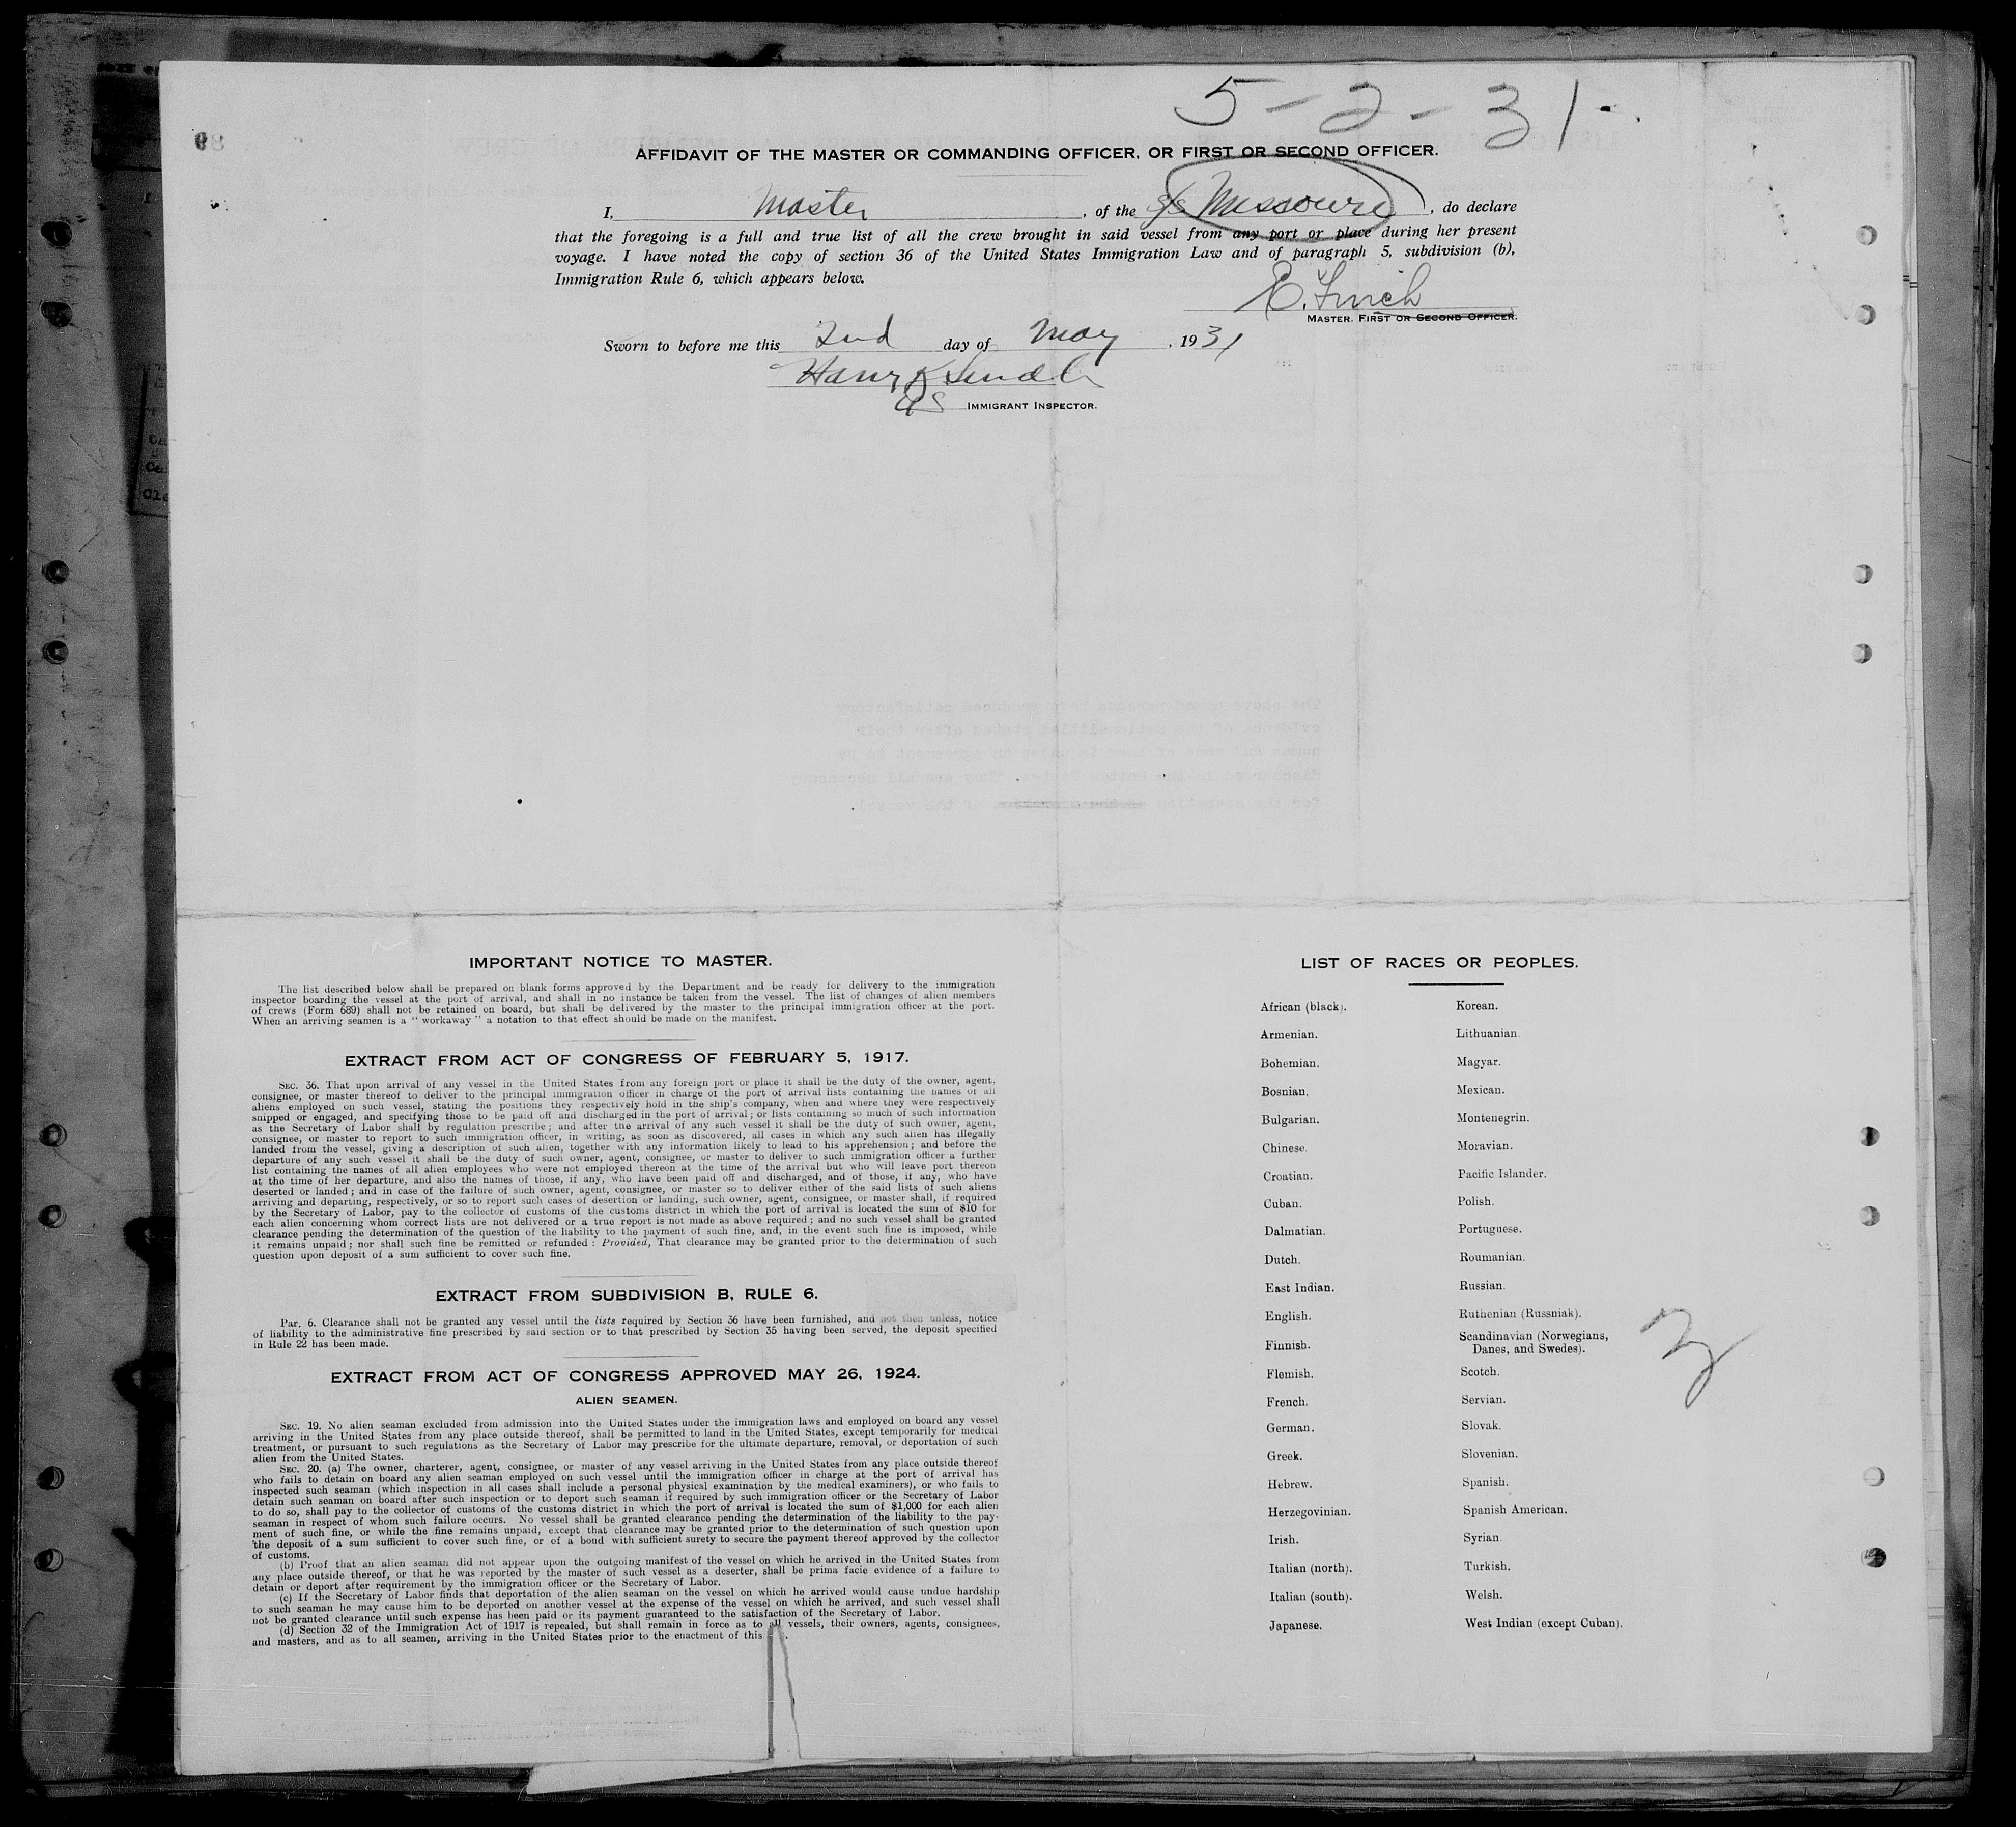 5-2-31.
AFFIDAVIT OF THE MASTER OR COMMANDING OFFICER, OR FIRST OR SECOND OFFICER.
I, Master, of the S/S Missouri, do declare
that the foregoing is a full and true list of all the crew brought in said vessel from any port or place during her present
voyage. I have noted the copy of section 36 of the United States Immigration Law and of paragraph 5, subdivision (b),
Immigration Rule 6, which appears below.
E. Finch
MASTER, FIRST OR SECOND OFFICER.
Sworn to before me this 2nd day of May, 1931
Harry
US IMMIGRANT INSPECTOR.
IMPORTANT NOTICE TO MASTER.
The list described below shall be prepared on blank forms approved by the Department and be ready for delivery to the immigration
inspector boarding the vessel at the port of arrival, and shall in no instance be taken from the vessel. The list of changes of alien members
of crews (Form 689) shall not be retained on board, but shall be delivered by the master to the principal immigration officer at the port.
When an arriving seamen is a "workaway" a notation to that effect should be made on the manifest.
EXTRACT FROM ACT OF CONGRESS OF FEBRUARY 5, 1917.
SEC. 36. That upon arrival of any vessel in the United States from any foreign port or place it shall be the duty of the owner, agent,
consignee, or master thereof to deliver to the principal immigration officer in charge of the port of arrival lists containing the names of all
aliens employed on such vessel, stating the positions they respectively hold in the ship's company, when and where they were respectively
shipped or engaged, and specifying those to be paid off and discharged in the port of arrival; or lists containing so much of such information
as the Secretary of Labor shall by regulation prescribe; and after the arrival of any such vessel it shall be the duty of such owner, agent,
consignee, or master to report to such immigration officer, in writing, as soon as discovered, all cases in which any such alien has illegally
landed from the vessel, giving a description of such alien, together with any information likely to lead to his apprehension; and before the
departure of any such vessel it shall be the duty of such owner, agent, consignee, or master to deliver to such immigration officer a further
list containing the names of all alien employees who were not employed thereon at the time of the arrival but who will leave port thereon
at the time of her departure, and also the names of those, if any, who have been paid off and discharged, and of those, if any, who have
deserted or landed; and in case of the failure of such owner, agent, consignee, or master so to deliver either of the said lists of such aliens
arriving and departing, respectively, or so to report such cases of desertion or landing, such owner, agent, consignee, or master shall, if required
by the Secretary of Labor, pay to the collector of customs of the customs district in which the port of arrival is located the sum of $10 for
each alien concerning whom correct lists are not delivered or a true report is not made as above required; and no such vessel shall be granted
clearance pending the determination of the question of the liability to the payment of such fine, and, in the event such fine is imposed, while
it remains unpaid; nor shall such fine be remitted or refunded: Provided, That clearance may be granted prior to the determination of such
question upon deposit of a sum sufficient to cover such fine.
EXTRACT FROM SUBDIVISION B, RULE 6.
Par. 6. Clearance shall not be granted any vessel until the lists required by Section 36 have been furnished, and not then unless, notice
of liability to the administrative fine prescribed by said section or to that prescribed by Section 35 having been served, the deposit specified
in Rule 22 has been made.
EXTRACT FROM ACT OF CONGRESS APPROVED MAY 26, 1924.
ALIEN SEAMEN.
SEC. 19. No alien seaman excluded from admission into the United States under the immigration laws and employed on board any vessel
arriving in the United States from any place outside thereof, shall be permitted to land in the United States, except temporarily for medical
treatment, or pursuant to such regulations as the Secretary of Labor may prescribe for the ultimate departure, removal, or deportation of such
alien from the United States.
SEC. 20. (a) The owner, charterer, agent, consignee, or master of any vessel arriving in the United States from any place outside thereof
who fails to detain on board any alien seaman employed on such vessel until the immigration officer in charge at the port of arrival has
inspected such seaman (which inspection in all cases shall include a personal physical examination by the medical examiners), or who fails to
detain such seaman on board after such inspection or to deport such seaman if required by such immigration officer or the Secretary of Labor
to do so, shall pay to the collector of customs of the customs district in which the port of arrival is located the sum of $1,000 for each alien
seaman in respect of whom such failure occurs. No vessel shall be granted clearance pending the determination of the liability to the pay-
ment of such fine, or while the fine remains unpaid, except that clearance may be granted prior to the determination of such question upon
the deposit of a sum sufficient to cover such fine, or of a bond with sufficient surety to secure the payment thereof approved by the collector
of customs.
(b) Proof that an alien seaman did not appear upon the outgoing manifest of the vessel on which he arrived in the United States from
any place outside thereof, or that he was reported by the master of such vessel as a deserter, shall be prima facie evidence of a failure to
detain or deport after requirement by the immigration officer or the Secretary of Labor.
(c) If the Secretary of Labor finds that deportation of the alien seaman on the vessel on which he arrived would cause undue hardship
to such seaman he may cause him to be deported on another vessel at the expense of the vessel on which he arrived, and such vessel shall
not be granted clearance until such expense has been paid or its payment guaranteed to the satisfaction of the Secretary of Labor.
(d) Section 32 of the Immigration Act of 1917 is repealed, but shall remain in force as to all vessels, their owners, agents, consignees,
and masters, and as to all seamen, arriving in the United States prior to the enactment of this
LIST OF RACES OR PEOPLES.
African (black). Korean.
Armenian. Lithuanian.
Bohemian. Magyar.
Bosnian. Mexican.
Bulgarian. Montenegrin.
Chinese. Moravian.
Croatian. Pacific Islander.
Cuban. Polish.
Dalmatian. Portuguese.
Dutch. Roumanian.
East Indian. Russian.
English. Ruthenian (Russniak).
Finnish. Scandinavian (Norwegians,
Danes, and Swedes).
Flemish. Scotch.
French. Servian.
German. Slovak.
Greek. Slovenian.
Hebrew. Spanish.
Herzegovinian. Spanish American.
Irish. Syrian.
Italian (north). Turkish.
Italian (south). Welsh.
Japanese. West Indian (except Cuban).